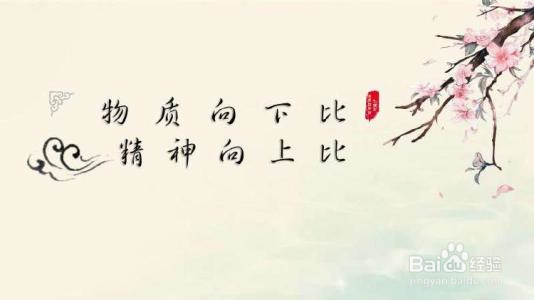 物质向下比
精神向上比
Baidu经验
jingyan.baidu.com